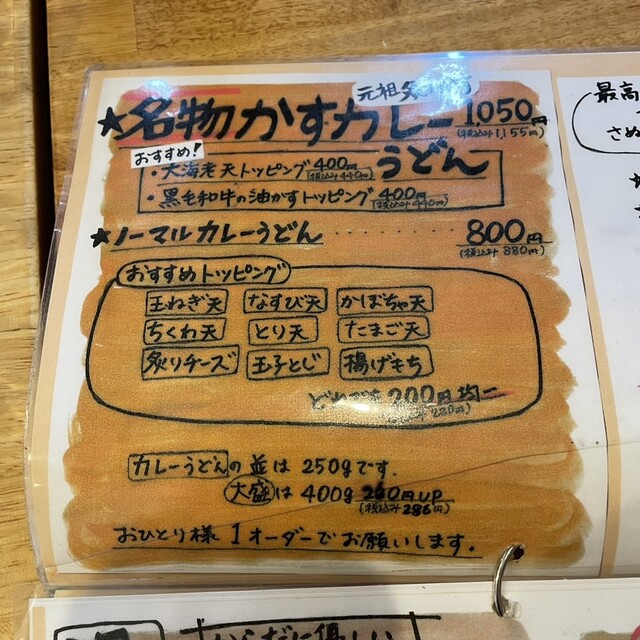 元祖
★名物かすカレーうどん 1050円
(税込み1,155円)
おすすめ!
・大海老天トッピング 400円
(税込み440円)
・黒毛和牛の油かすトッピング 400円
(税込み440円)
★ノーマルカレーうどん ・・・・・・・・ 800円
(税込み880円)
おすすめトッピング
玉ねぎ天 なすび天 かぼちゃ天
ちくわ天 とり天 たまご天
炙りチーズ 玉子とじ 揚げもち
どれでも 200円 均一
220円)
カレーうどんの並は250gです.
大盛は400g 260円UP
(税込み286円)
おひとり様1オーダーでお願いします.
最高
さぬ